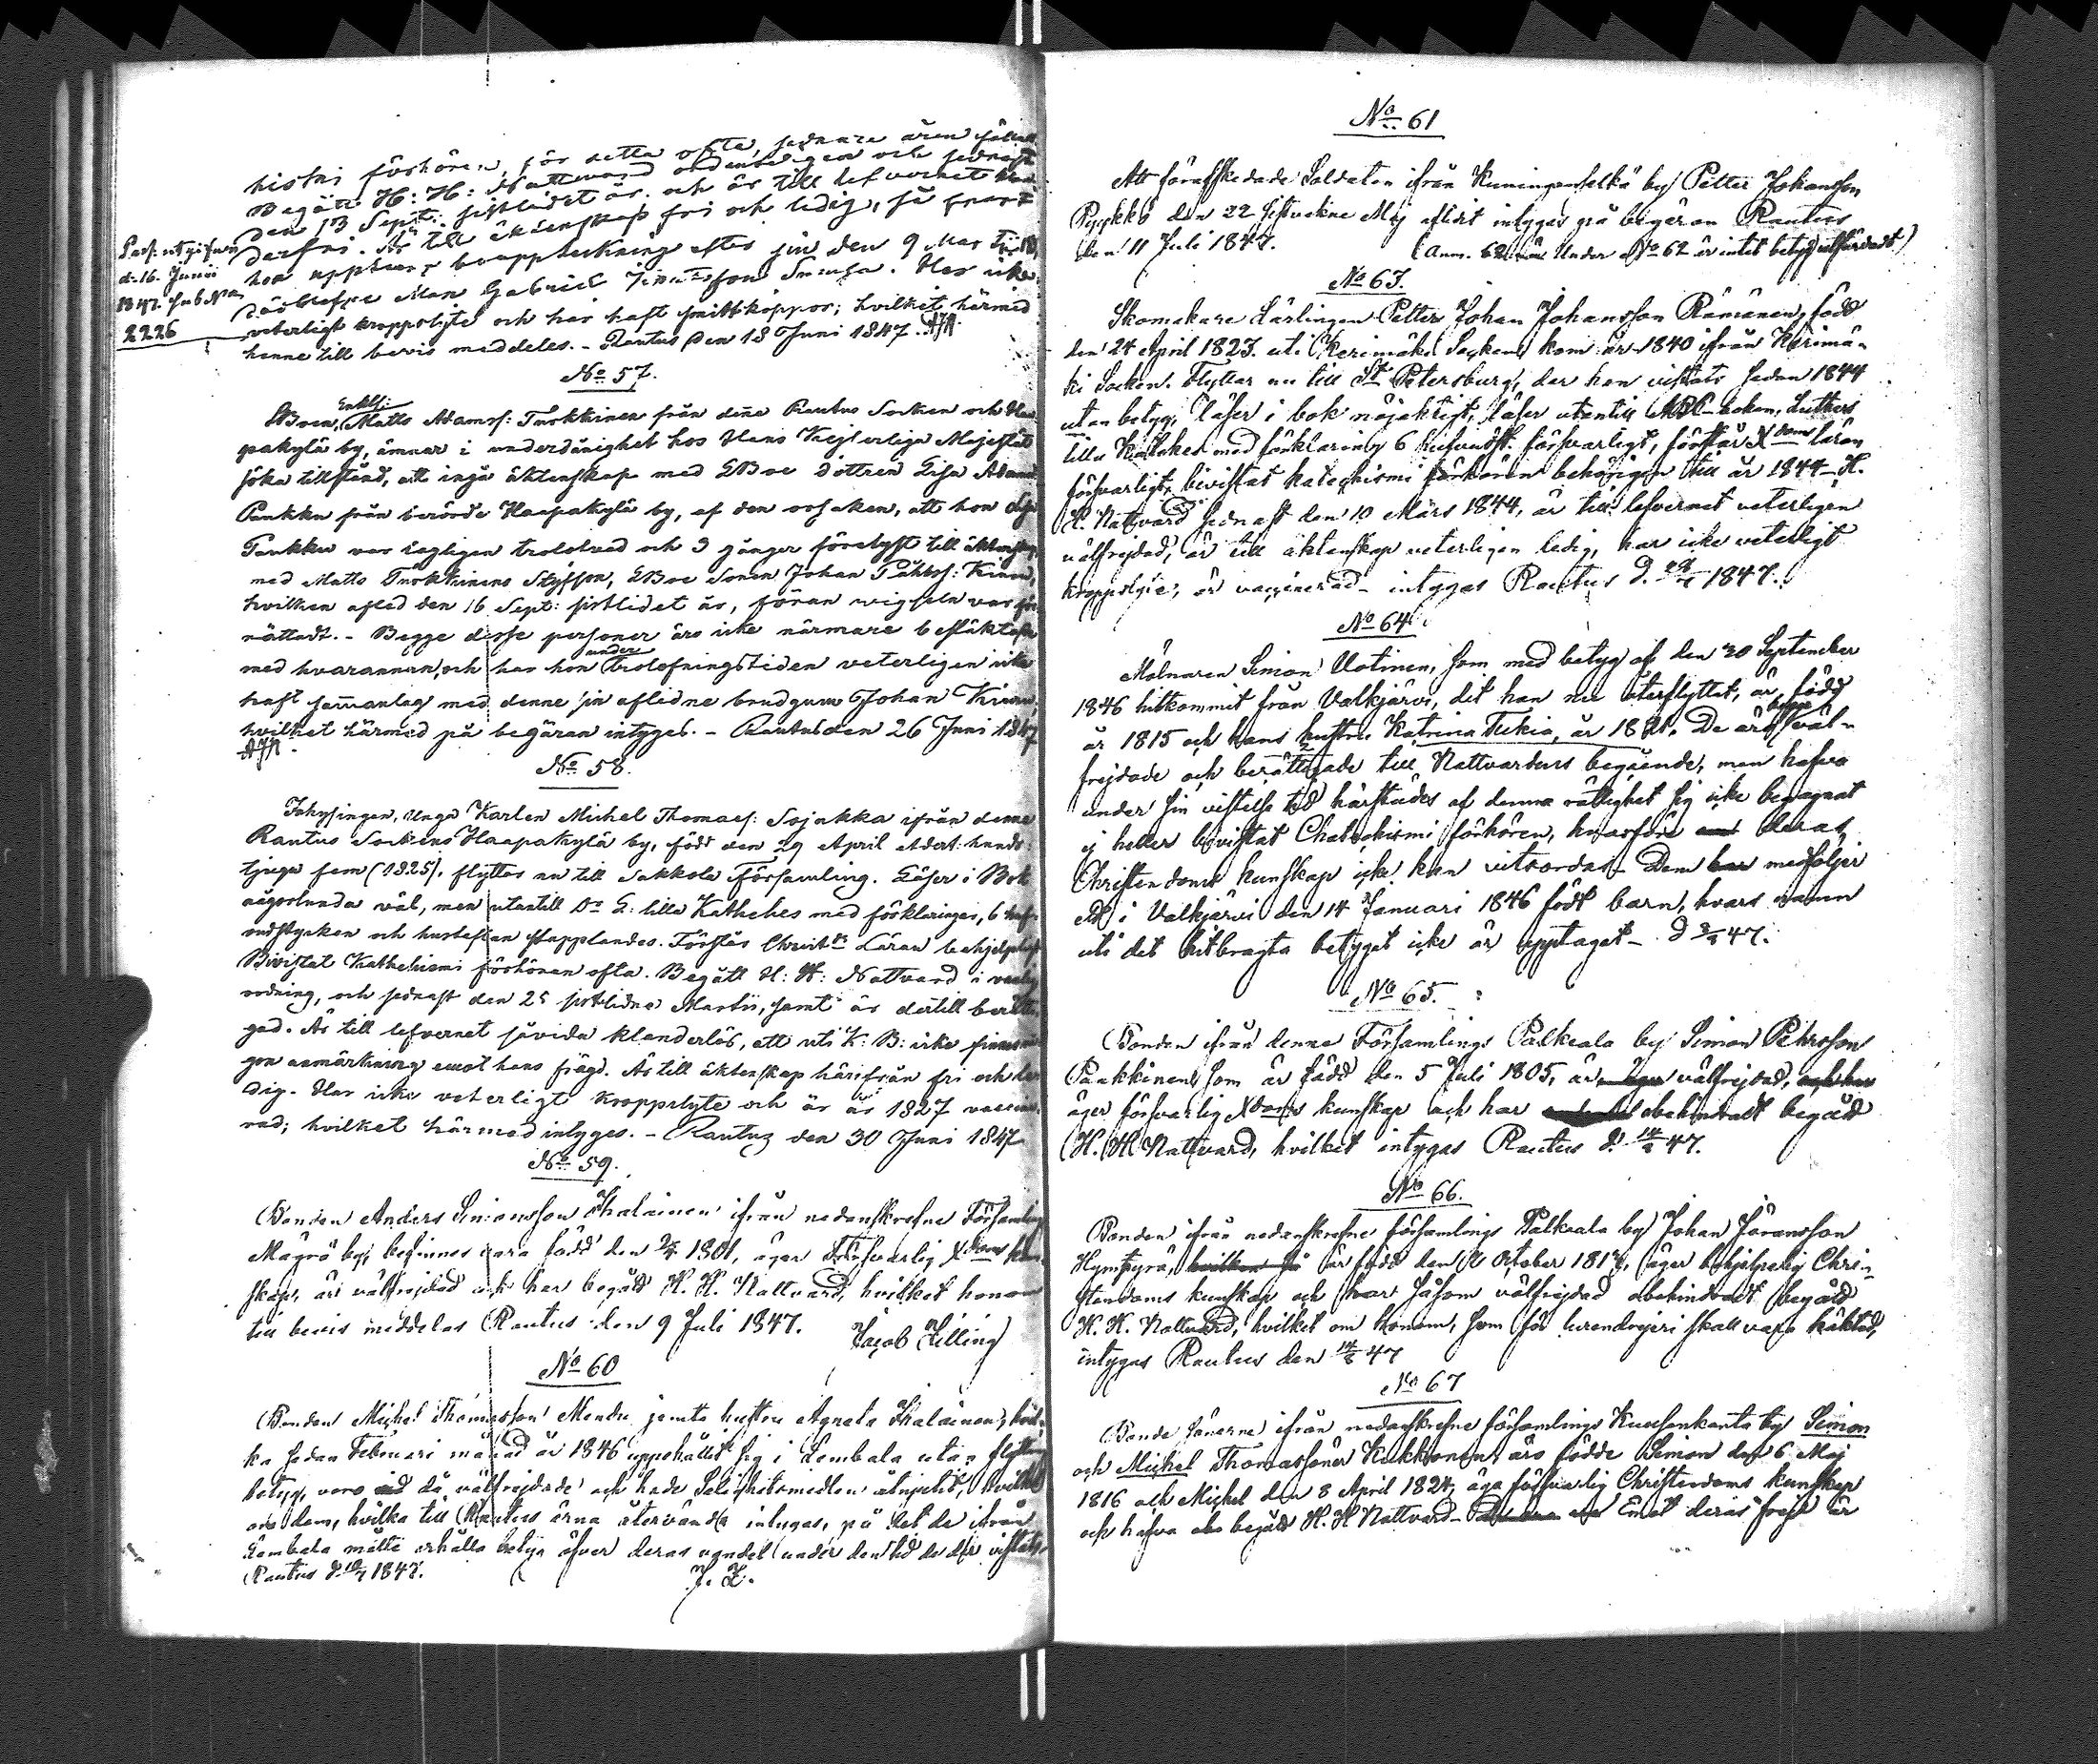 histni förhören, för detta ofta, sednare åren
Begått H: H: Nattvard ordentligen och sednast
den 13 Sept: sistlidet år och är till lefvernet
derfri. Är till äktenskap fri och ledig, så snart
hon upptear bouppteckning efter sin den 9 Mar
Man Gabriel Simonsson Har icke
veterligt kroppslyte och har haft smittkoppor; hvilket härmed
henne till bevis meddeles. - Rautus den 18 Juni 1847.
Pass utgifven
d. 16. Junii
1847. sub No
2226
No 57.
Enkl:
EBoen, Matts Adamsf: Tuokkinen från denne Rautus Socken och Haa
pakylä by, ämnar i underdånighet hos Hans Kejserliga Majestät
söka tillstånd, att ingå äktenskap med EBoe dottren Lisa Adamsd
Paukku från berörde Haapakylä by, af den orsaken, att hon Lisa
Paukku var lagligen trolofvad och 3 gånger förelyst till äktenskap
med Matts Tuokkinens Styfson, EBoe Sonen Johan Påhlsf: Kinnu,
hvilken afled den 16 Sept: sistlidet år, föran wigseln var för
rättadt. - Begge desse personer äro icke närmare besläktade
med hvarannan, och har hon under trolofningstiden veterligen icke
haft samanlag med denne sin aflidne brudgum Johan Kinnu,
hvilket härmed på begäran intyges. - Rautus den 26 Juni 1847
No 58.
Inhysingen, Unga Karlen Michel Thomaes: Sojakka ifrån denne
Rautus Sockens Haapakylä by, född den 29 April Adert: hundr
tjugu fem (1825), flyttar nu till Sakkola Församling. Läser i Bok
någorlunda väl, men utantill Dr L: lilla Kathekes med förklaringar, 6 huf
vudstycken och hustaflan stapplandes. Förstår Christ:ns Läran behjelpligt.
Bivistat Kathekismi förhören ofta. Begått H: H: Nattvard i vanlig
ordning, och sednast den 25 sistlidne Martii, samt är dertill berätti
gad. Är till lefvernet såvida klanderlös, att uti K: B: icke finnes nå
gon anmärkning emot hans frägd. Är till äktenskap härifrån fri och le
dig. Har icke veterligt kroppslyte och är år 1827 vaccine
rad; hvilket härmed intyges. - Rautus den 30 Juni 1847
No 59.
Bonden Anders Simonsson Ihalainen ifrån nedanskrefne Församlings
Mägrä by, befinnes vara född den 1801, äger försvarlig Xdoms kun
skap, är välfrejdad och har begått H. H. Nattvard, hvilket honom
till bevis meddelas Rautus den 9 Juli 1847. Jacob Zilling
No 60
Bonden Michel Thomasson Mendu jemte hustru Agneta Ihalainen, hvil
ka sedan Februari månad år 1846 uppehållit sig i Lembala utan flyttnings
betyg, voro då välfrejdade och hade Salighetsmedlen åtnjutit, hvilket
om dem, hvilka till Rautus ärna återvända intygas, på det de ifrån
Lembala måtte erhålla betyg öfver deras vandel under den tid de der vistats.
Rautus d. 1847. J. Z.
No 61
Att föraffskedade Soldaten ifrån Kuningasselkä by Petter Johansson
Pyykkö den 22 sistvekne Maj aflidit intygas på begäran Rautus
den 11 Juli 1847. (Anm. Under No 62 är intet betyg utfärdadt)
No 63.
Skomakare Lärlingen Petter Johan Johansson Rämänen, född
den 24 April 1823 uti Kerimäki Socken, kom år 1840 ifrån Kerimä-
ki Socken. Flyttar nu till St Petersburg, der han vistats sedan 1844
utan betyg, läser i bok nöjaktigt, läser utantill ABC-boken, Luthers
lilla Kateches med förklaring 6 hufvudst. försvarligt, förstår Xdoms läran
försvarligt, bivistat katechismi förhören behörigen till år 1844 - H.
H. Nattvard sednast den 10 Mars 1844, är till lefvernet veterligen
välfrejdad, är till äktenskap veterligen ledig, har icke veterligt
kroppslyte, är vaccinerad - intygas Rautus d. 1847.
No 64
Mölnaren Simon Uotinen, som med betyg af den 20 September
1846 hitkommit från Valkjärvi, dit han nu återflyttat, är född
år 1815 och hans hustru Katrina Tukia, år 1821. De äro begge väl-
frejdade och berättigade till Nattvardens begående, men hafva
under sin vistelse tid härstädes af denna rättighet sig icke begagnat
ej heller bivistat Chatechismi förhören, hvarföre deras
Christendoms kunskap icke kan vitsordas. Dem medföljer
ett i Valkjärvi den 14 Januari 1846 född barn, hvars namn
uti det hitbragta betyget icke är upptaget - d 47.
No 65.
Bonden ifrån denna Församlings Palkeala by Simon Pehrsson
Paukkinen, som är född den 5 Juli 1805, är välfrejdad,
äger försvarlig Xdoms kunskap och har obehindradt begått
H. H. Nattvard, hvilket intygas Rautus d. 47.
No 66.
Bonden ifrån nedanskrefne församlings Palkeala by Johan Göransson
Hymttyrä, är född den October 1817, äger behjelpelig Chri-
stendoms kunskap och har såsom välfrejdad obehindradt begått
H. H. Nattvard, hvilket om honom, som för lurendrejeri skall vara häktad,
intygas Rautus den 47
No 67
Bonde sönerne ifrån nedanskrefne församlings Kuusenkanta by Simon
och Michel Thomassöner Kukkonen, äro födde Simon den 6 Maj
1816 och Michel den 8 April 1824, äga försvarlig Christendoms kunskap
och hafva begått H. H. Nattvard - Emot deras frejd är